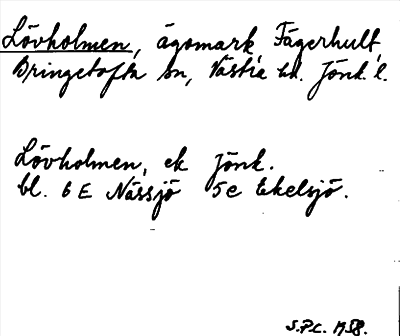 Lövholmen, ägomark Fägerhult,
Bringetofta sn, Västra hd. Jönk. l.
Lövholmen, ek Jönk.
bl. 6 E Nässjö 5 e Ekelsjö.
S.P.L. 1958.